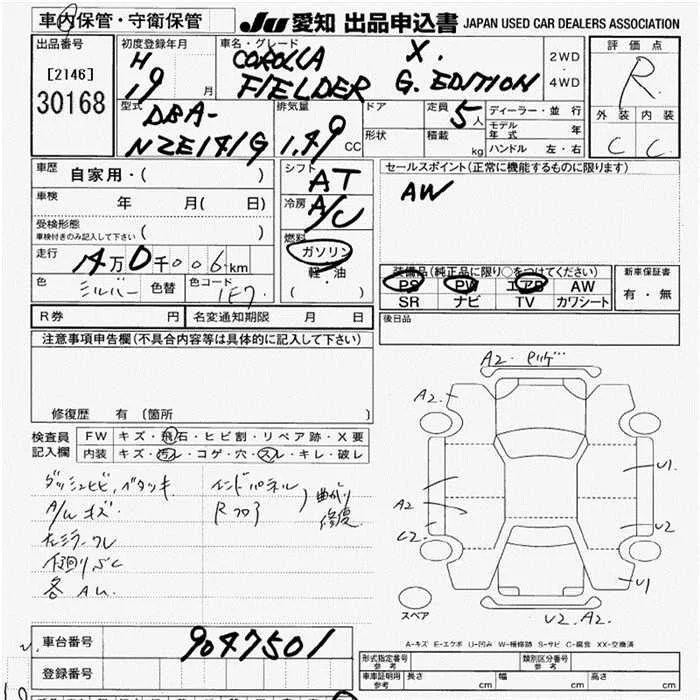 車内保管・守衛保管
JU 愛知 出品申込書 JAPAN USED CAR DEALERS ASSOCIATION
出品番号
[2146]
30168
初度登録年月
H
19 月
車名・グレード
COROLLA X.
FIELDER G. EDITION
2WD
4WD
評価点
R
外装 内装
C C
型式
DBA-
NZE141G
排気量
1.49 CC
ドア
形状
定員
5人
積載
kg
ディーラー・並行
モデル年式 年
ハンドル 左・右
車歴
自家用・( )
車検
年 月( 日)
受検形態
車検付きのみ記入して下さい ( )
走行
14万0千006km
色
シルバー
色替
色コード
1F7
シフト
AT
冷房
A/C
燃料
ガソリン
軽・油
( )
セールスポイント(正常に機能するものに限ります)
AW
装備品(純正品に限り○をつけてください)
PS PW エアB AW
SR ナビ TV カワシート
新車保証書
有・無
R券 円
名変通知期限 月 日
後日品
注意事項申告欄(不具合内容等は具体的に記入して下さい)
修復歴 有 〔箇所 〕
検査員
記入欄
FW キズ・飛石・ヒビ割・リペア跡・X要
内装 キズ・汚レ・コゲ・穴・スレ・キレ・破レ
ダッシュヒビ、ベタツキ
A/Wキズ
左ミラーワレ
下廻りサビ
インドパネル
Rフロア
曲がり
修復
A2.
A2.
A2
C2.
U1.
U2
U1
U2. A2.
スペア
A-キズ E-エクボ U-凹み W-補修跡 S-サビ C-腐食 XX-交換済
車台番号
9047501
登録番号
形式指定番号
参考
類別区分番号
参考
車庫証明用
参考
長さ cm
幅 cm
高さ cm